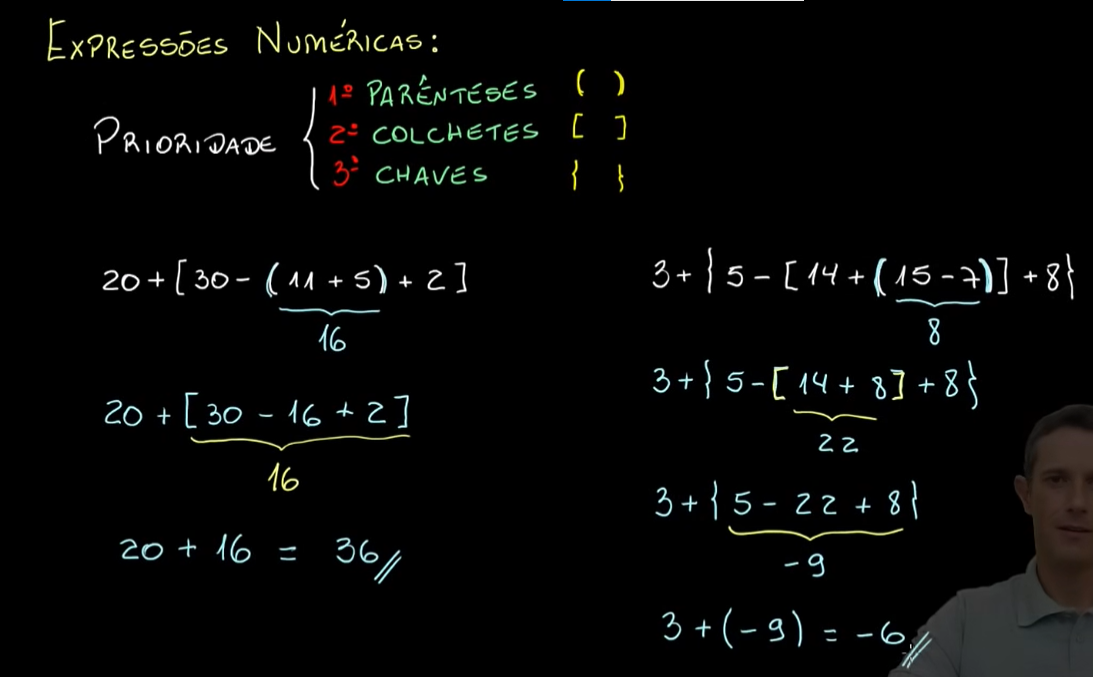 EXPRESSÕES NUMÉRICAS:
PRIORIDADE
1º PARÊNTESES ( )
2º COLCHETES [ ]
3º CHAVES { }
20+[30-(11+5)+2]
16
20+[30-16+2]
16
20+16 = 36
3+{5-[14+(15-7)]+8}
8
3+{5-[14+8]+8}
22
3+{5-22+8}
-9
3+(-9)=-6